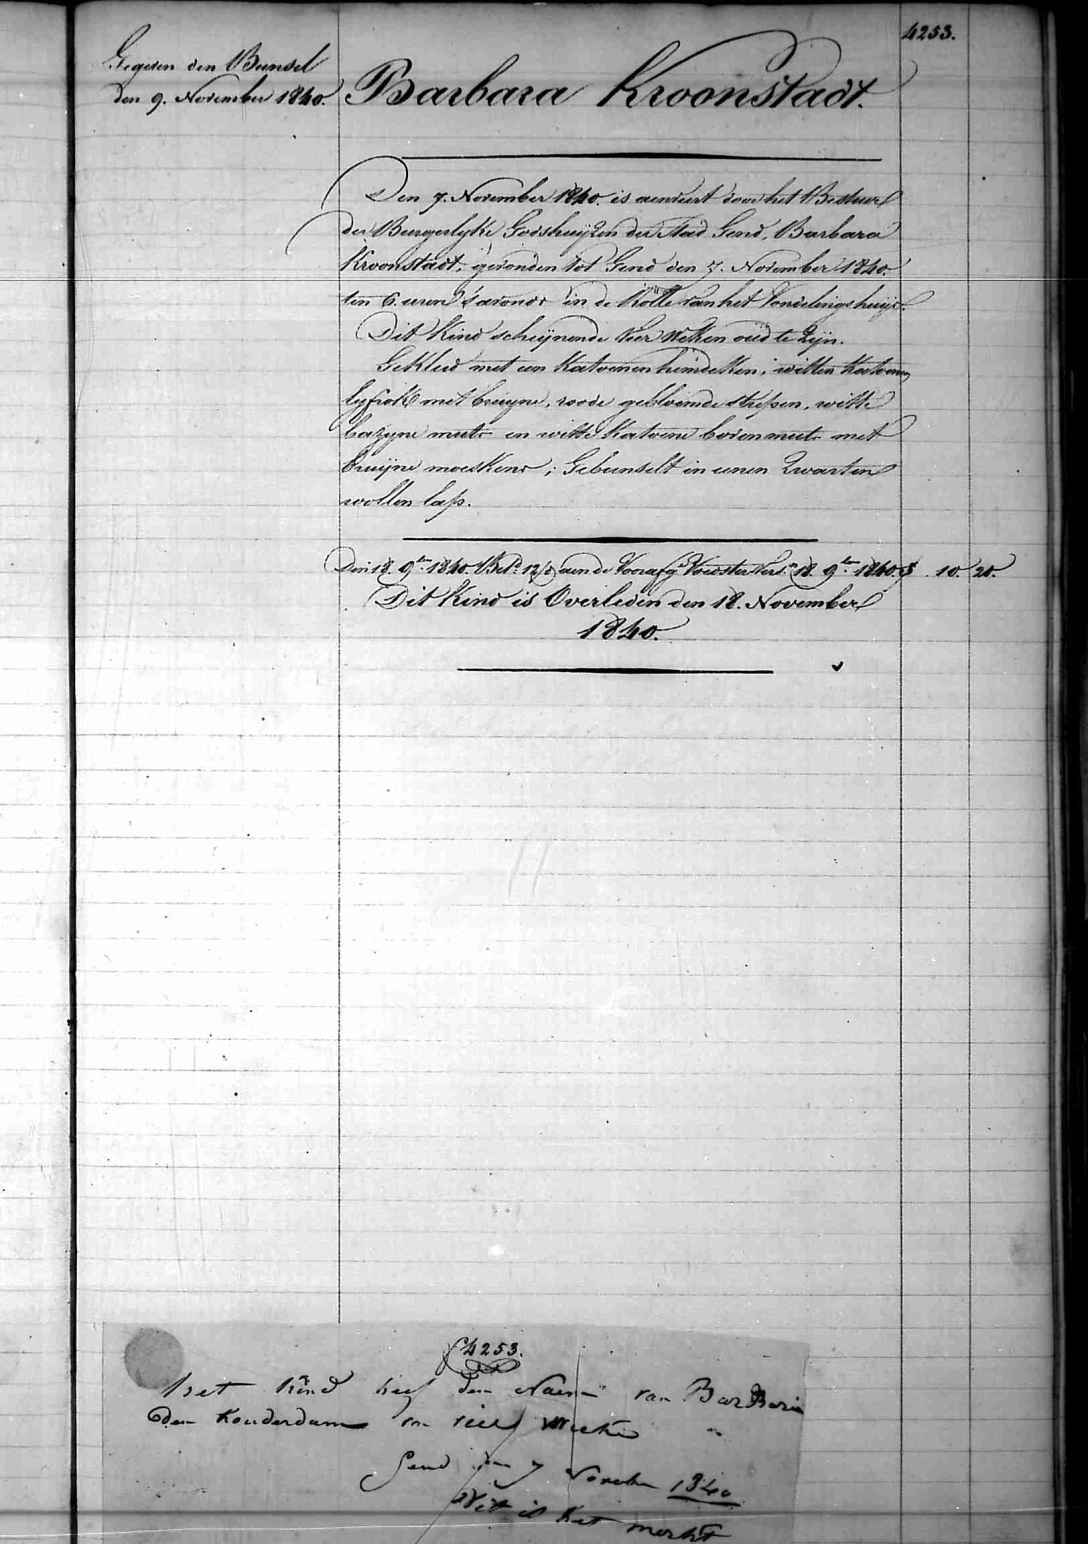 4253.
Gegeven den Bunsel
den 9. November 1840.
Barbara Kroonstadt.
Den 7. November 1840. is aenveirt door het Bestuur
der Burgerlyke Godshuijzen der Stad Gend, Barbara
Kroonstadt, gevonden tot Gend den 7. November 1840.
ten 6. uren 's avonds in de Rolle van het Vondelingshuijs.
Dit Kind scheijnende vier Weken oud te Zijn.
Gekleed met een Katoenen hemdeken; witten Katoenen
lyfrok met bruyne, roode gebloemde strepen, witte
bazyne muts en witte Katoene bovenmuts met
bruijne moeskens; Gebunselt in eenen Zwarten
wollen lap.
Den 18. 9bre 1840. Bet. 12/ aen de Voorafge Voedster Vers. 18. 9bre 1840. 10. 20.
Dit Kind is Overleden den 18. November
1840.
4253.
het kind heef den Naem van BarBera
den Kouderdam van vier Weeke
Gend den 7 Novebr 1840
Dit is het merkt